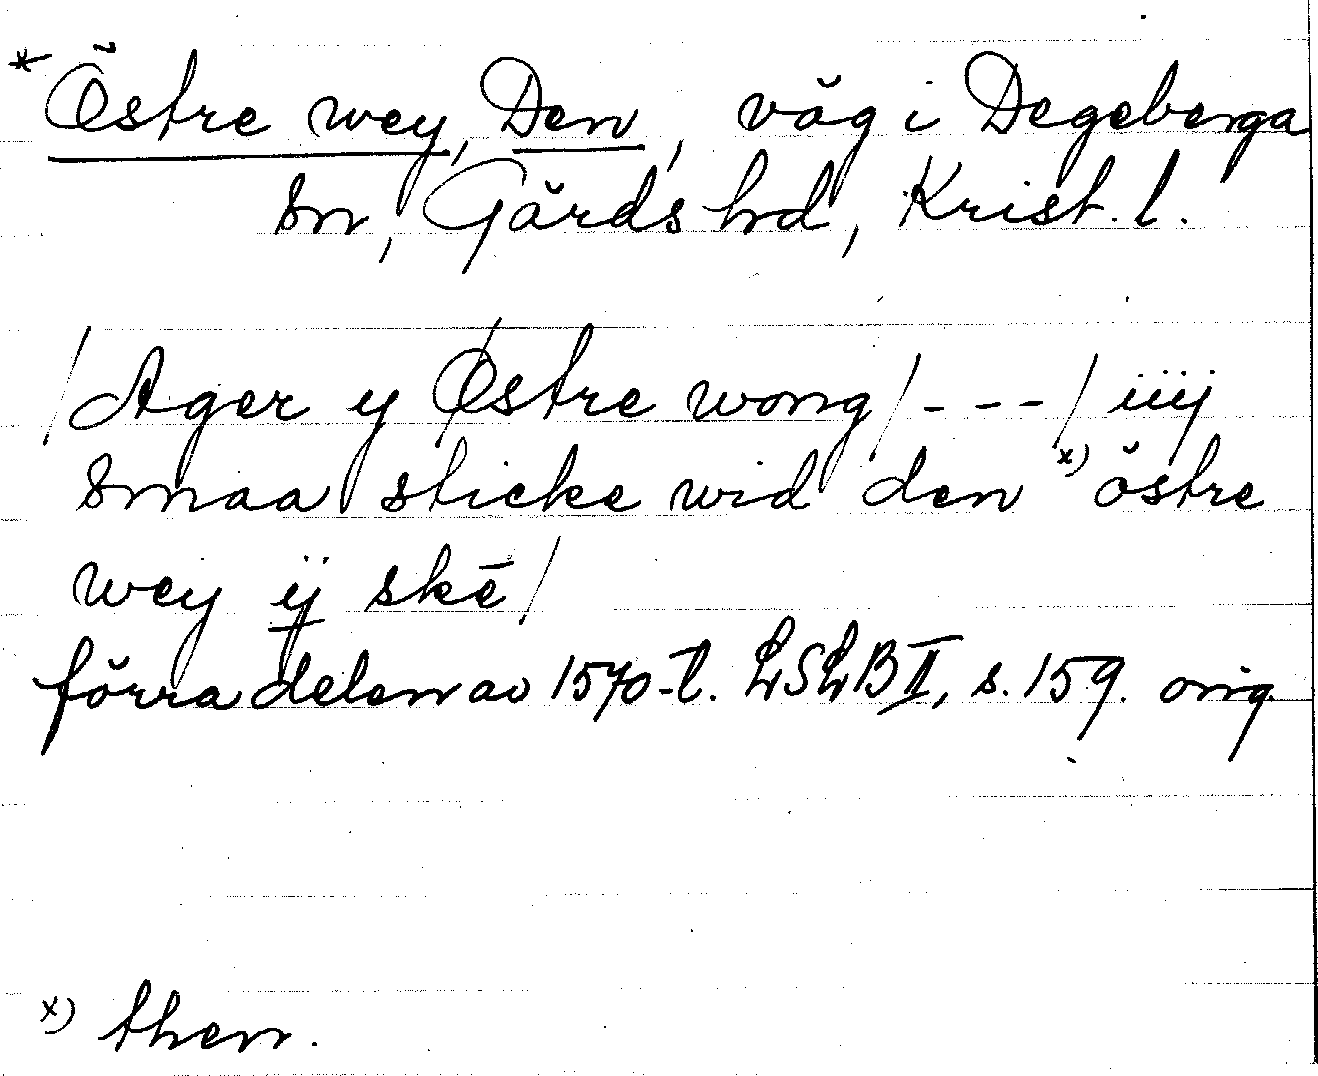 * Östre wey, Den, väg i Degeberga
sn, Gärds hd, Krist. l.
/Ager y Østre wong/ - - - / iiij
smaa sticke wid den x) östre
wey ij skē/
förra delen av 1570-t. LSLB II, s. 159. orig
x) then.